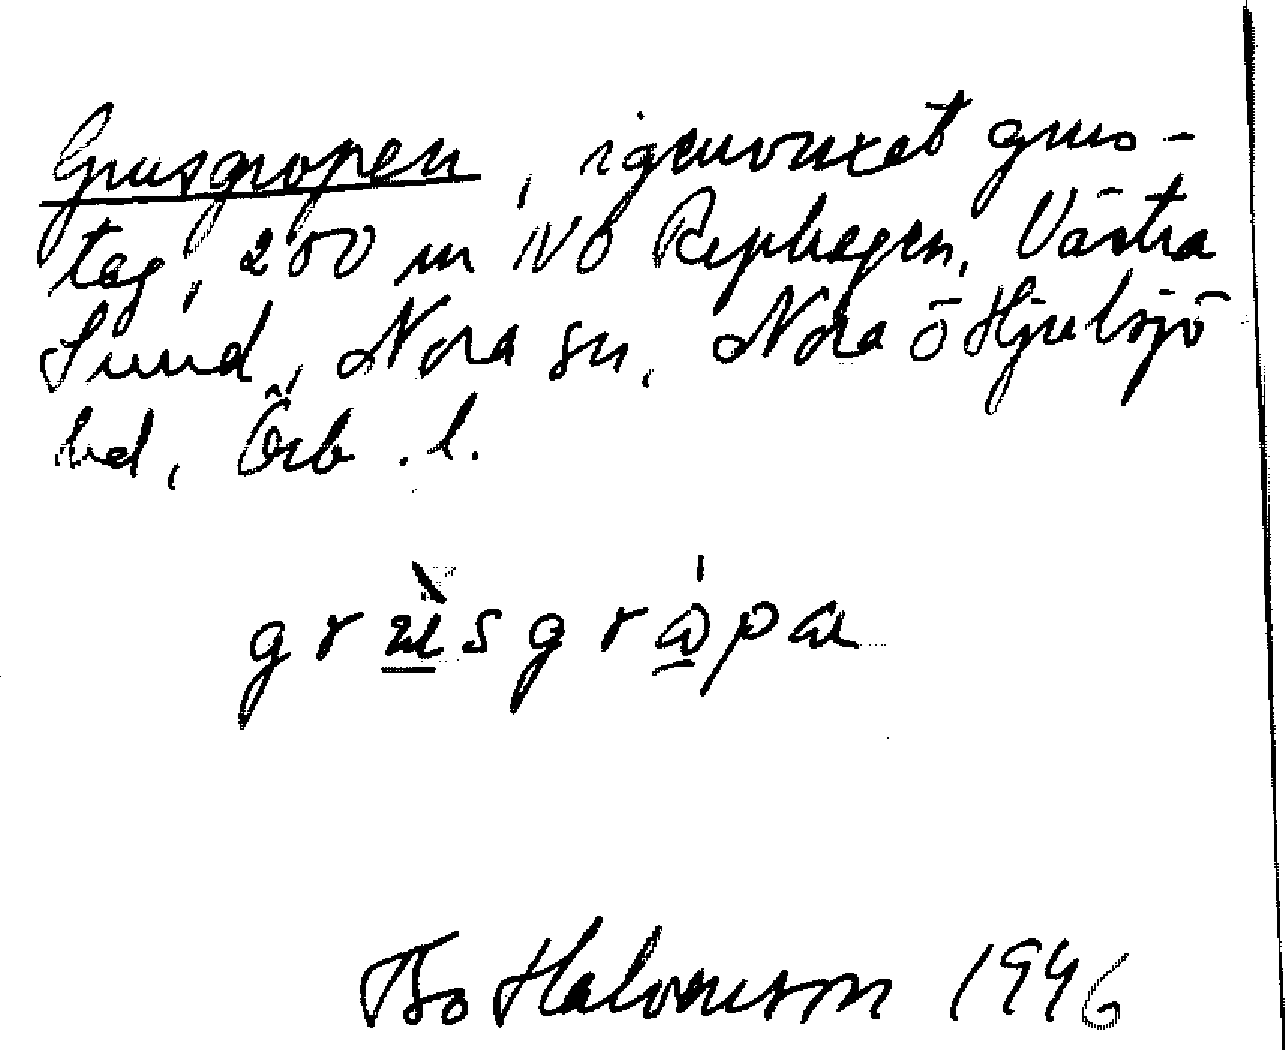 Grusgropen, igenvuxet grus-
tag, 200 m NO Rephagen, Västra
Sund, Nora sn, Nora o Hjulsjö
bd, Örb. l.
grùsgrápa
Bo Halvarsson 1996